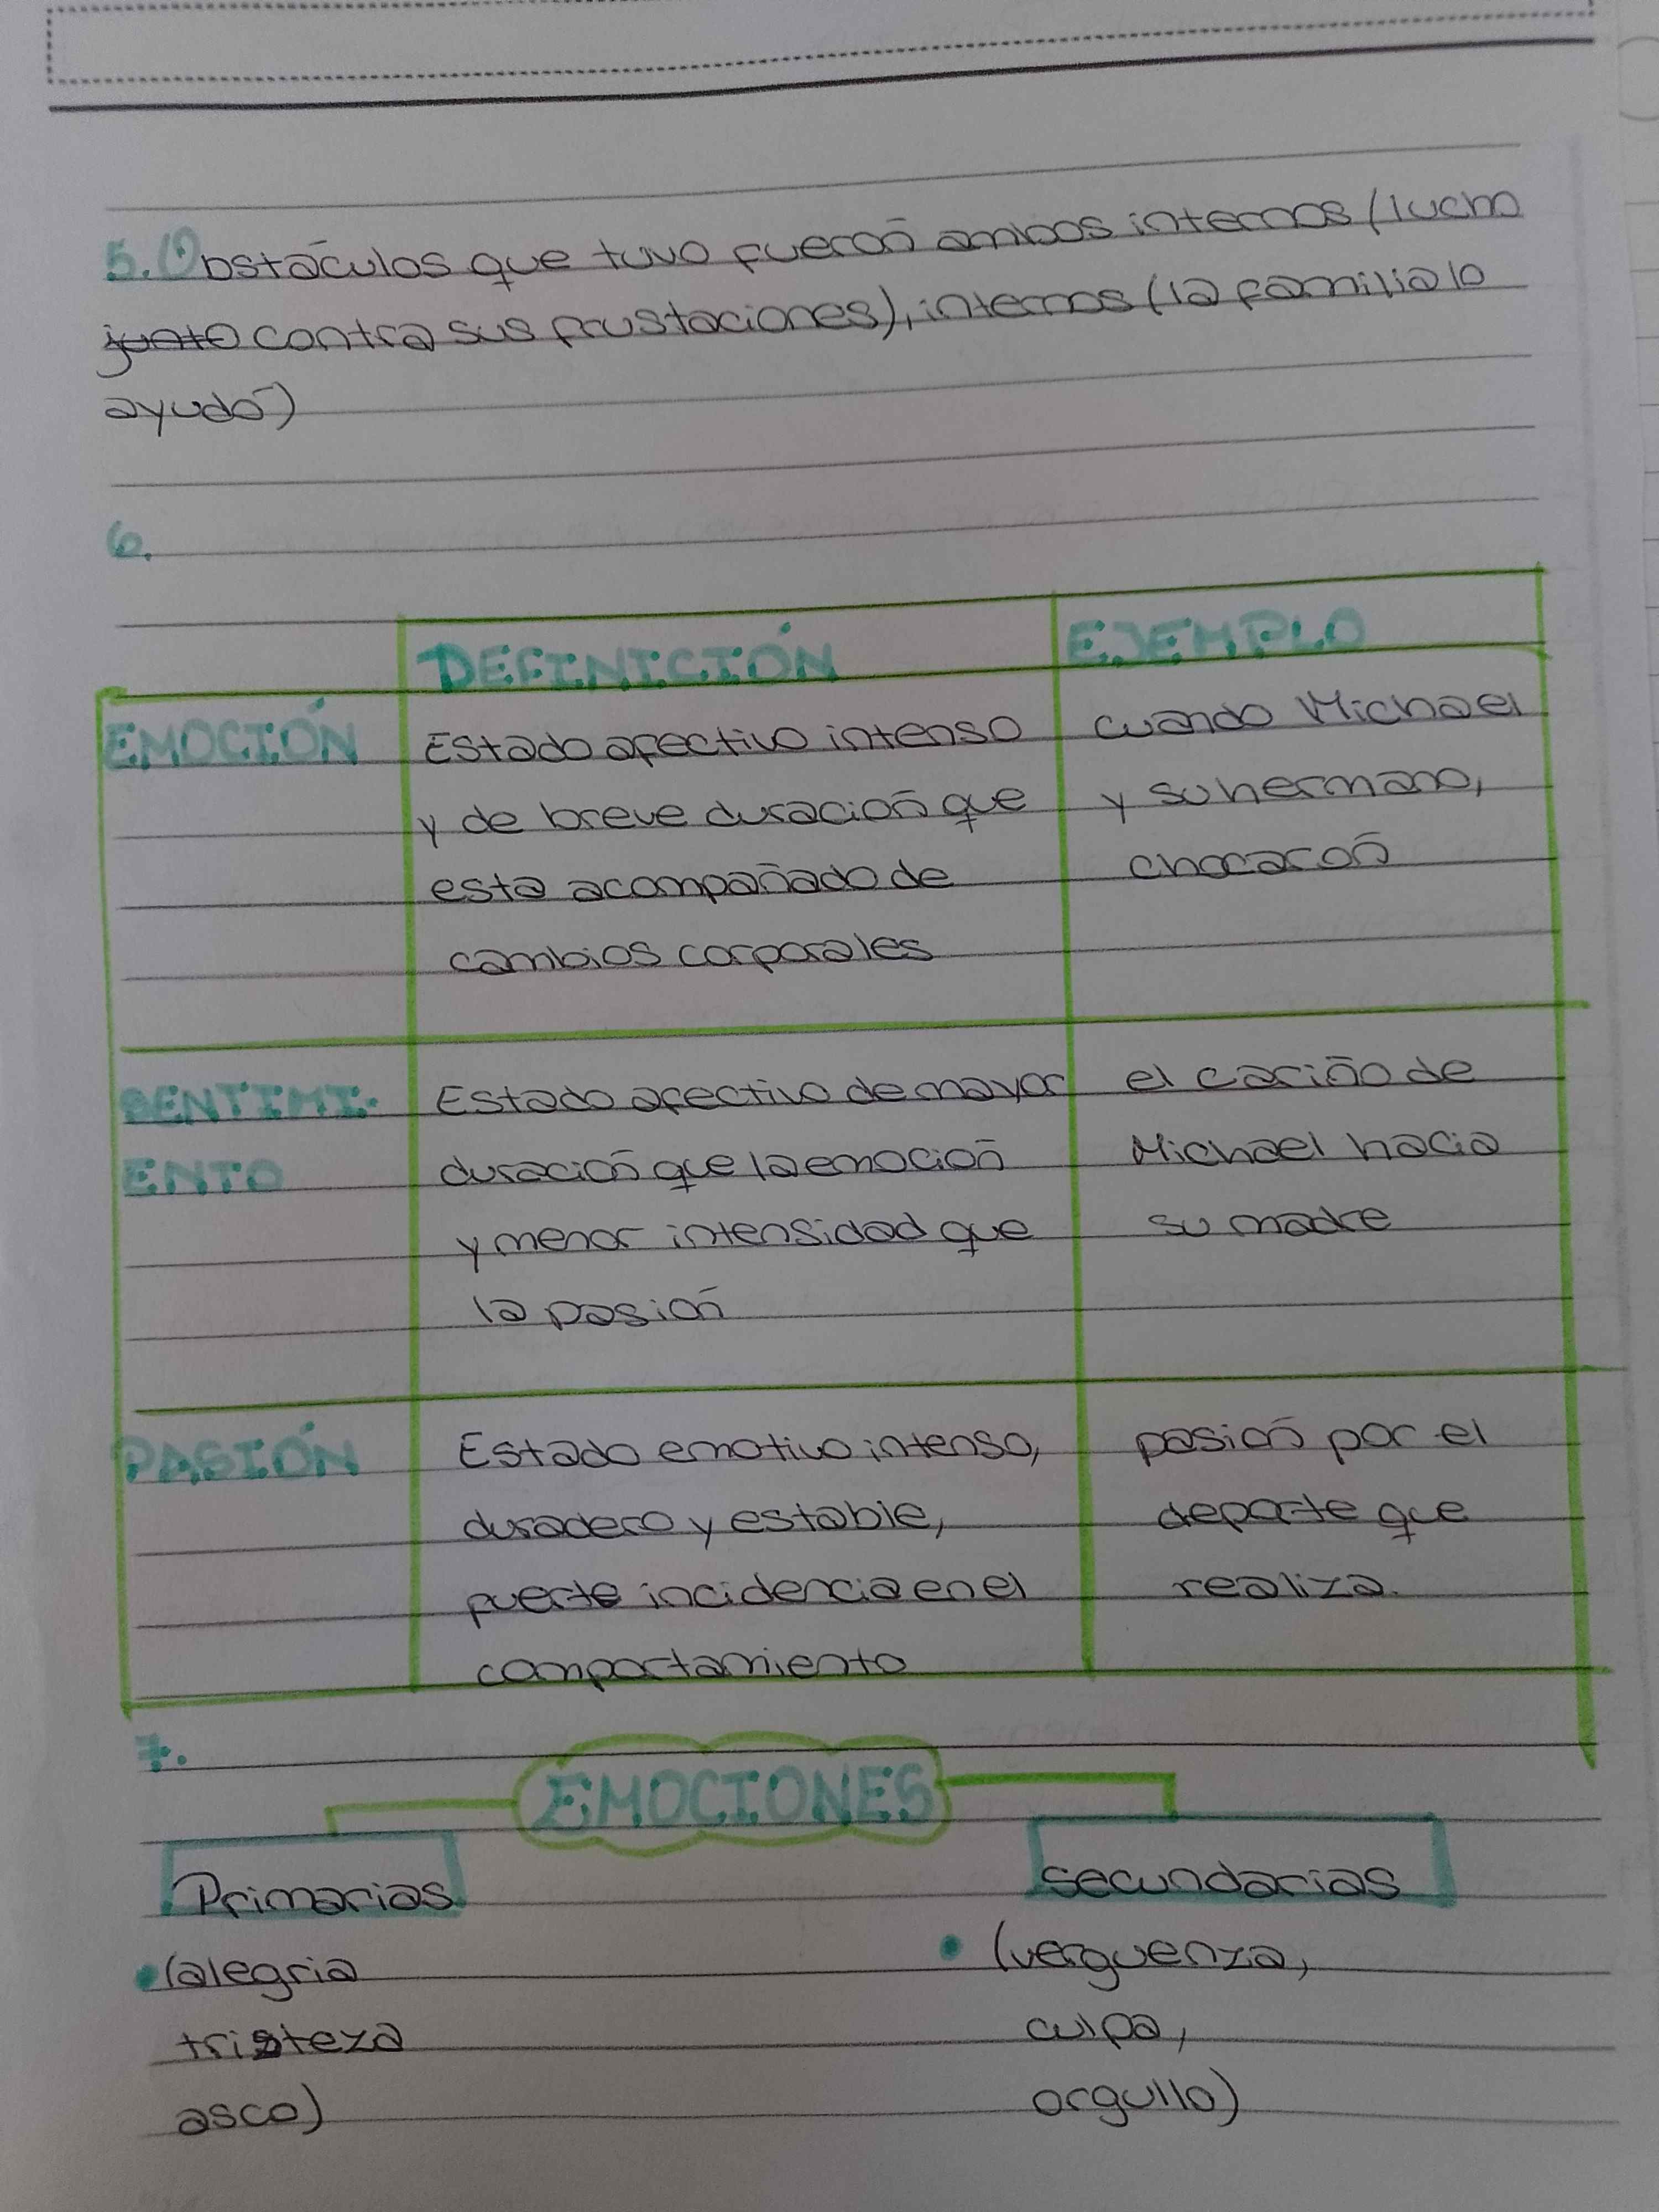 5. Obstáculos que tuvo fuerón ambos internos (lucho
junto contra sus frustaciones), internos (la familia lo
ayudó)
6.
DEFINICIÓN EJEMPLO
EMOCIÓN Estado afectivo intenso cuando Michael
y de breve duración que y su hermano,
esta acompañado de chocarón
cambios corporales
SENTIMI- Estado afectivo de mayor el cariño de
ENTO duración que la emoción Michael hacia
y menor intensidad que su madre
la pasión
PASIÓN Estado emotivo intenso, pasión por el
duradero y estable, deporte que
fuerte incidencia en el realiza.
comportamiento
7.
EMOCIONES
Primarias secundarias
• (alegria • (verguenza,
tristeza culpa,
asco) orgullo)